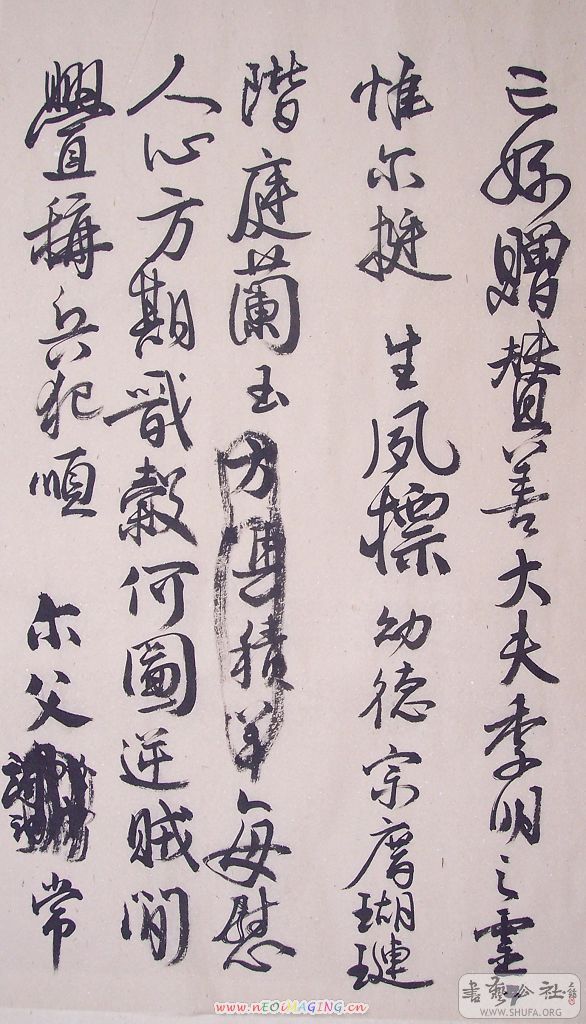 亡姪贈贊善大夫季明之靈
惟尔挺生夙標幼德宗庿瑚璉
階庭蘭玉方積每慰
人心方期戩穀何圖逆賊閒
舋稱兵犯順尔父常
書藝公社
WWW.SHUFA.ORG
www.nEOiMAGiNG.cn